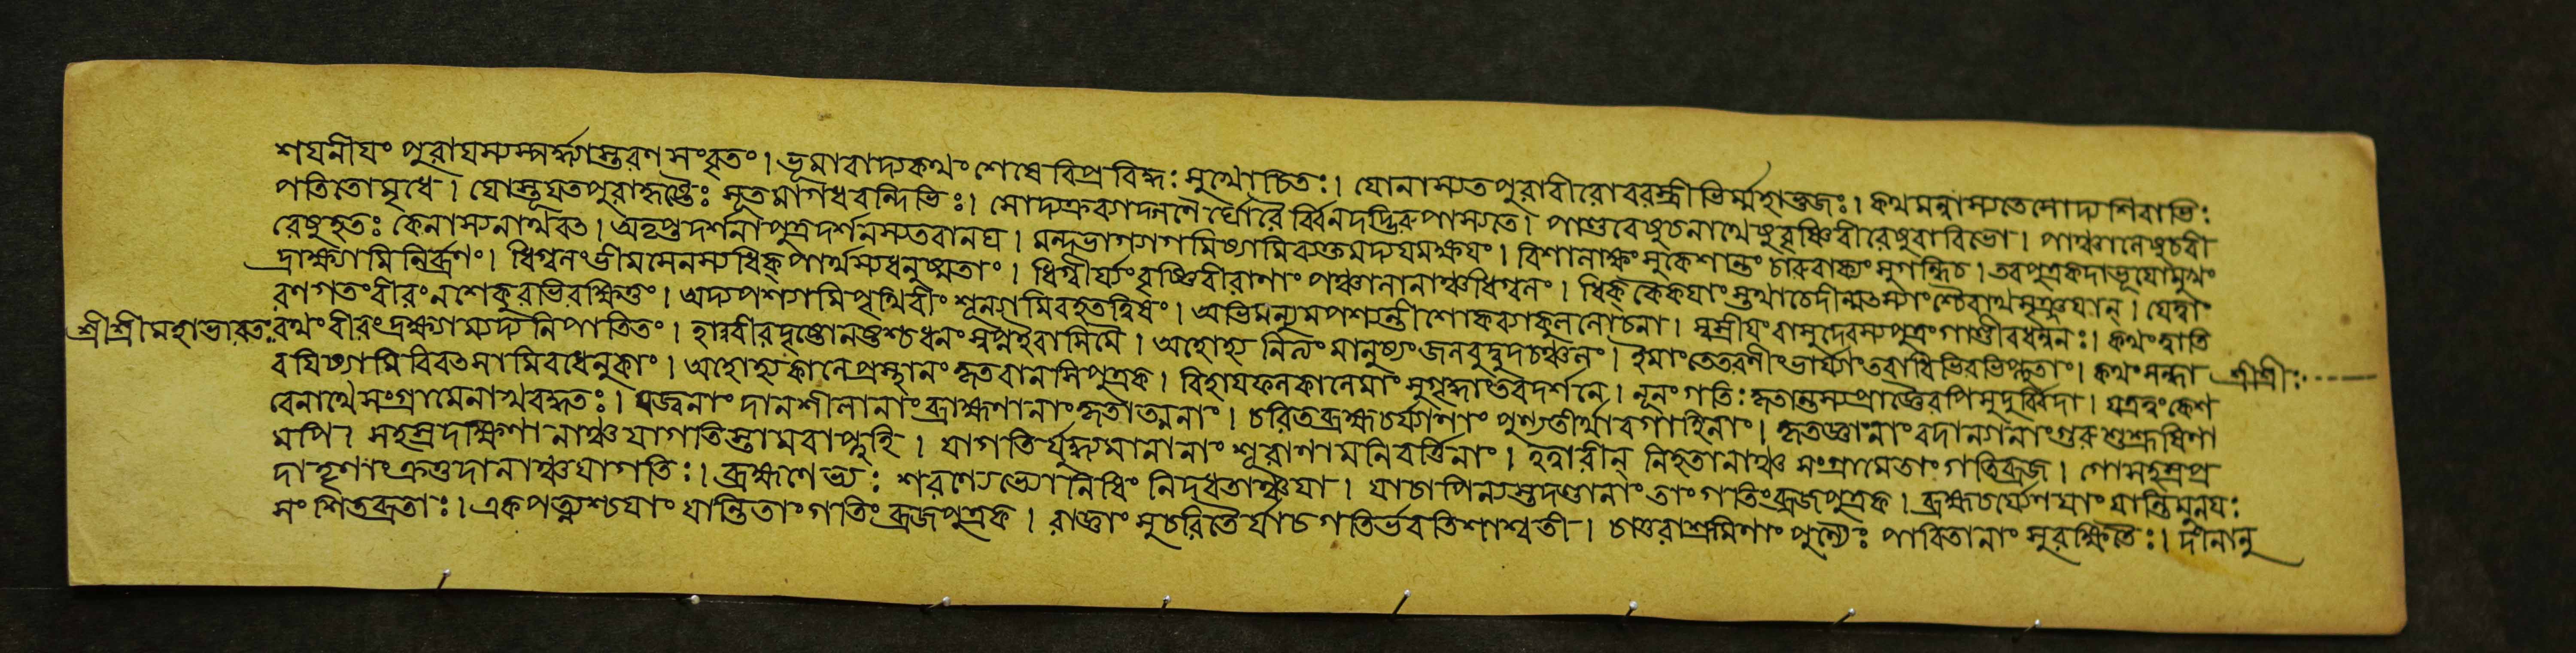 শযনীযং পুরাযস্যস্পর্দ্ধ্যাস্তরণ সংবৃতং। ভূমাবাদ্যকথং শেষে বিপ্রবিদ্ধঃ সুখোচিতঃ। যোনাস্যত পুরাবীরোবরস্ত্রীভির্ম্মহাভুজঃ। কথমন্বাস্যতেসোদ্য শিবাভিঃ
পতিতোমৃধে। যোস্তূযতপুরাহৃষ্টৈঃ সূতমাগধবন্দিভিঃ। সোদ্যক্রব্যাদগণৈ র্ঘোরৈ র্বিনদদ্ভিরুপাস্যতে। পাণ্ডবেষুচনাথেষুবৃষ্ণিবীরেষুবাবিভো। পাঞ্চালেষুচবী
রেষুহতঃ কেনাস্যনাথবৎ। অতৃপ্তদর্শনাপুত্রদর্শনস্যতবানঘ। মন্দভাগ্যাগমিষ্যামিব্যক্তমদ্যযমক্ষযং। বিশালাক্ষং সুকেশান্তং চারুবাক্যং সুগন্ধিচ। তবপুত্রকদাভূযোমুখং
দ্রক্ষ্যামিনির্ব্রণং। ধিগ্বলংভীমসেনস্যধিক্ পার্থস্যধনুষ্মতাং। ধিগ্বীর্য্যংবৃষ্ণিবীরাণাং পঞ্চালানাঞ্চধিগ্বলং। ধিক্ কেকযাংস্তথাচেদীন্মৎস্যাংশ্চৈবাথসৃঞ্জযান্। যেত্বাং
রণগতংবীরংনশেকুরভিরক্ষিতুং। অদ্যপশ্যামিপৃথিবীং শূন্যামিবহতত্বিষং। অভিমন্যুমপশ্যন্তীশোকব্যাকুললোচনা। স্বস্রীযংবাসুদেবস্যপুত্রংগাণ্ডীবধন্বনঃ। কথংত্বাতি
শ্রীশ্রীমহাভারতঃ রথংবীরংদ্রক্ষ্যাম্যদ্যনিপাতিতং। হাবীরদৃষ্টোনষ্টশ্চধনংস্বপ্নইবাসিমে। অহোহ্য নিত্যং মানুষ্যংজলবুদ্বুদচঞ্চলং। ইমাংতেতরুণীংভার্য্যাংতবাধিভিরভিপ্লুতাং। কথংসন্ধা শ্রীশ্রীঃ
রযিষ্যামিবিবৎসামিবধেনুকাং। অহোহ্যকালেপ্রস্থানং কৃতবানসিপুত্রক। বিহাযফলকালেমাং সুগৃদ্ধাংতবদর্শনে। নূনং গতিঃ কৃতান্তস্যপ্রাজ্ঞৈরপিসুদুর্বিদা। যত্রত্বংকেশ
বেনাথেসংগ্রামেনাথবদ্ধতঃ। যজ্বনাং দানশীলানাংব্রাহ্মণানাংকৃতাত্মনাং। চরিতব্রহ্মচর্য্যাণাং পুণ্যতীর্থাবগাহিনাং। কৃতজ্ঞানাংবদান্যানাংগুরুশুশ্রূষিণা
মপি। সহস্রদক্ষিণানাঞ্চযাগতিস্তামবাপ্নুহি। যাগতির্যুদ্ধ্যমানানাং শূরাণামনিবর্ত্তিনাং। হত্বারীন্ নিহতানাঞ্চ সংগ্রামেতাংগতিংব্রজ। গোসহস্রপ্র
দাতৃণাংক্রতুদানাঞ্চযাগতিঃ। ব্রাহ্মণেভ্যঃ শরণ্যেভ্যোনিধিং নিদধতাঞ্চযা। যাচাপিন্যস্তদণ্ডানাং তাংগতিংব্রজপুত্রক। ব্রহ্মচর্য্যেণযাংযান্তিমুনযঃ
সংশিতব্রতাঃ। একপত্ন্যশ্চযাং যান্তিতাংগতিং ব্রজপুত্রক। রাজ্ঞাং সুচরিতৈর্যাচগতির্ভবতিশাশ্বতী। চতুরাশ্রমিণাং পুণ্যৈঃ পাবিতানাং সুরক্ষিতৈঃ। দীনানু